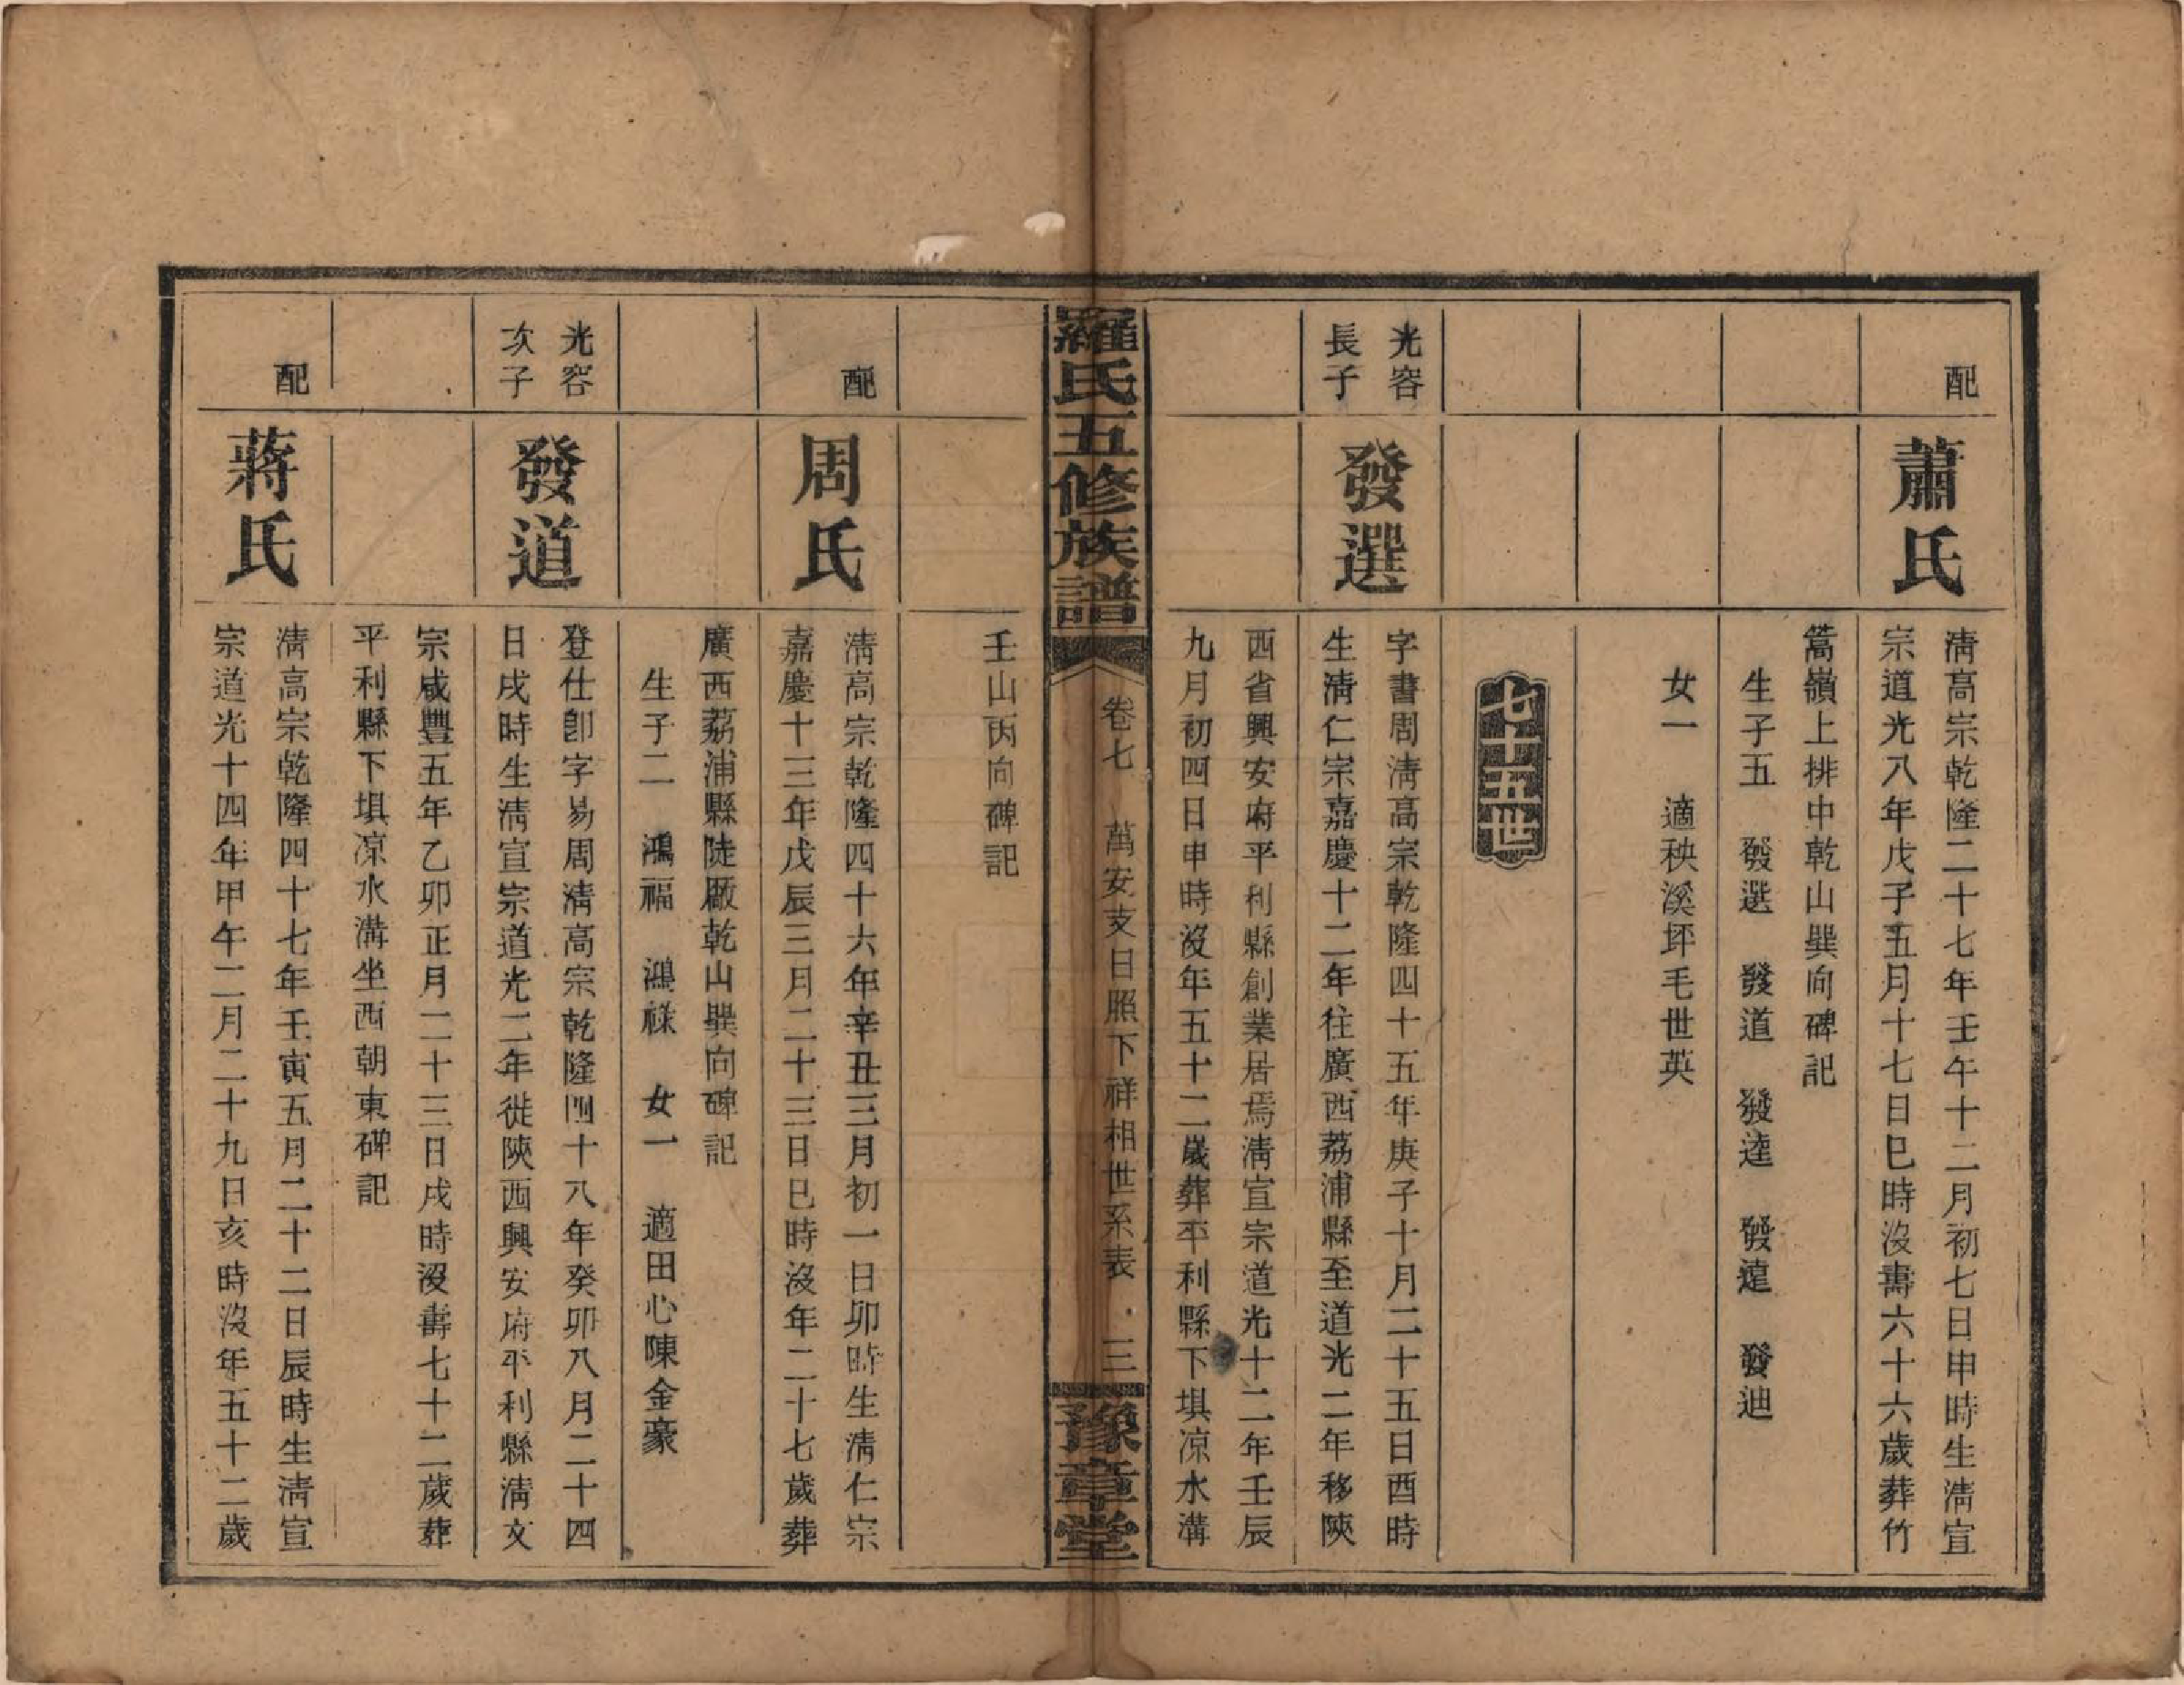 配
蕭氏
淸高宗乾隆二十七年壬午十二月初七日申時生淸宣
宗道光八年戊子五月十七日巳時沒壽六十六歲葬竹
篙嶺上排中乾山巽向碑記
生子五　發選　發道　發逵　發遠　發迪
女一　適秧溪坪毛世英
七十五世
光容
長子
發選
字書周淸高宗乾隆四十五年庚子十月二十五日酉時
生淸仁宗嘉慶十二年往廣西荔浦縣至道光二年移陝
西省興安府平利縣創業居焉淸宣宗道光十二年壬辰
九月初四日申時沒年五十二歲葬平利縣下埧凉水溝
羅氏五修族譜
卷七　萬安支日照下祥相世系表　三
豫章堂
壬山丙向碑記
配
周氏
淸高宗乾隆四十六年辛丑三月初一日卯時生淸仁宗
嘉慶十三年戊辰三月二十三日巳時沒年二十七歲葬
廣西荔浦縣陡厰乾山巽向碑記
生子二　鴻福　鴻祿　女一　適田心陳金豪
光容
次子
發道
登仕卽字易周淸高宗乾隆四十八年癸卯八月二十四
日戌時生淸宣宗道光二年徙陝西興安府平利縣淸文
宗咸豐五年乙卯正月二十三日戌時沒壽七十二歲葬
平利縣下埧凉水溝坐西朝東碑記
配
蔣氏
淸高宗乾隆四十七年壬寅五月二十二日辰時生淸宣
宗道光十四年甲午二月二十九日亥時沒年五十二歲